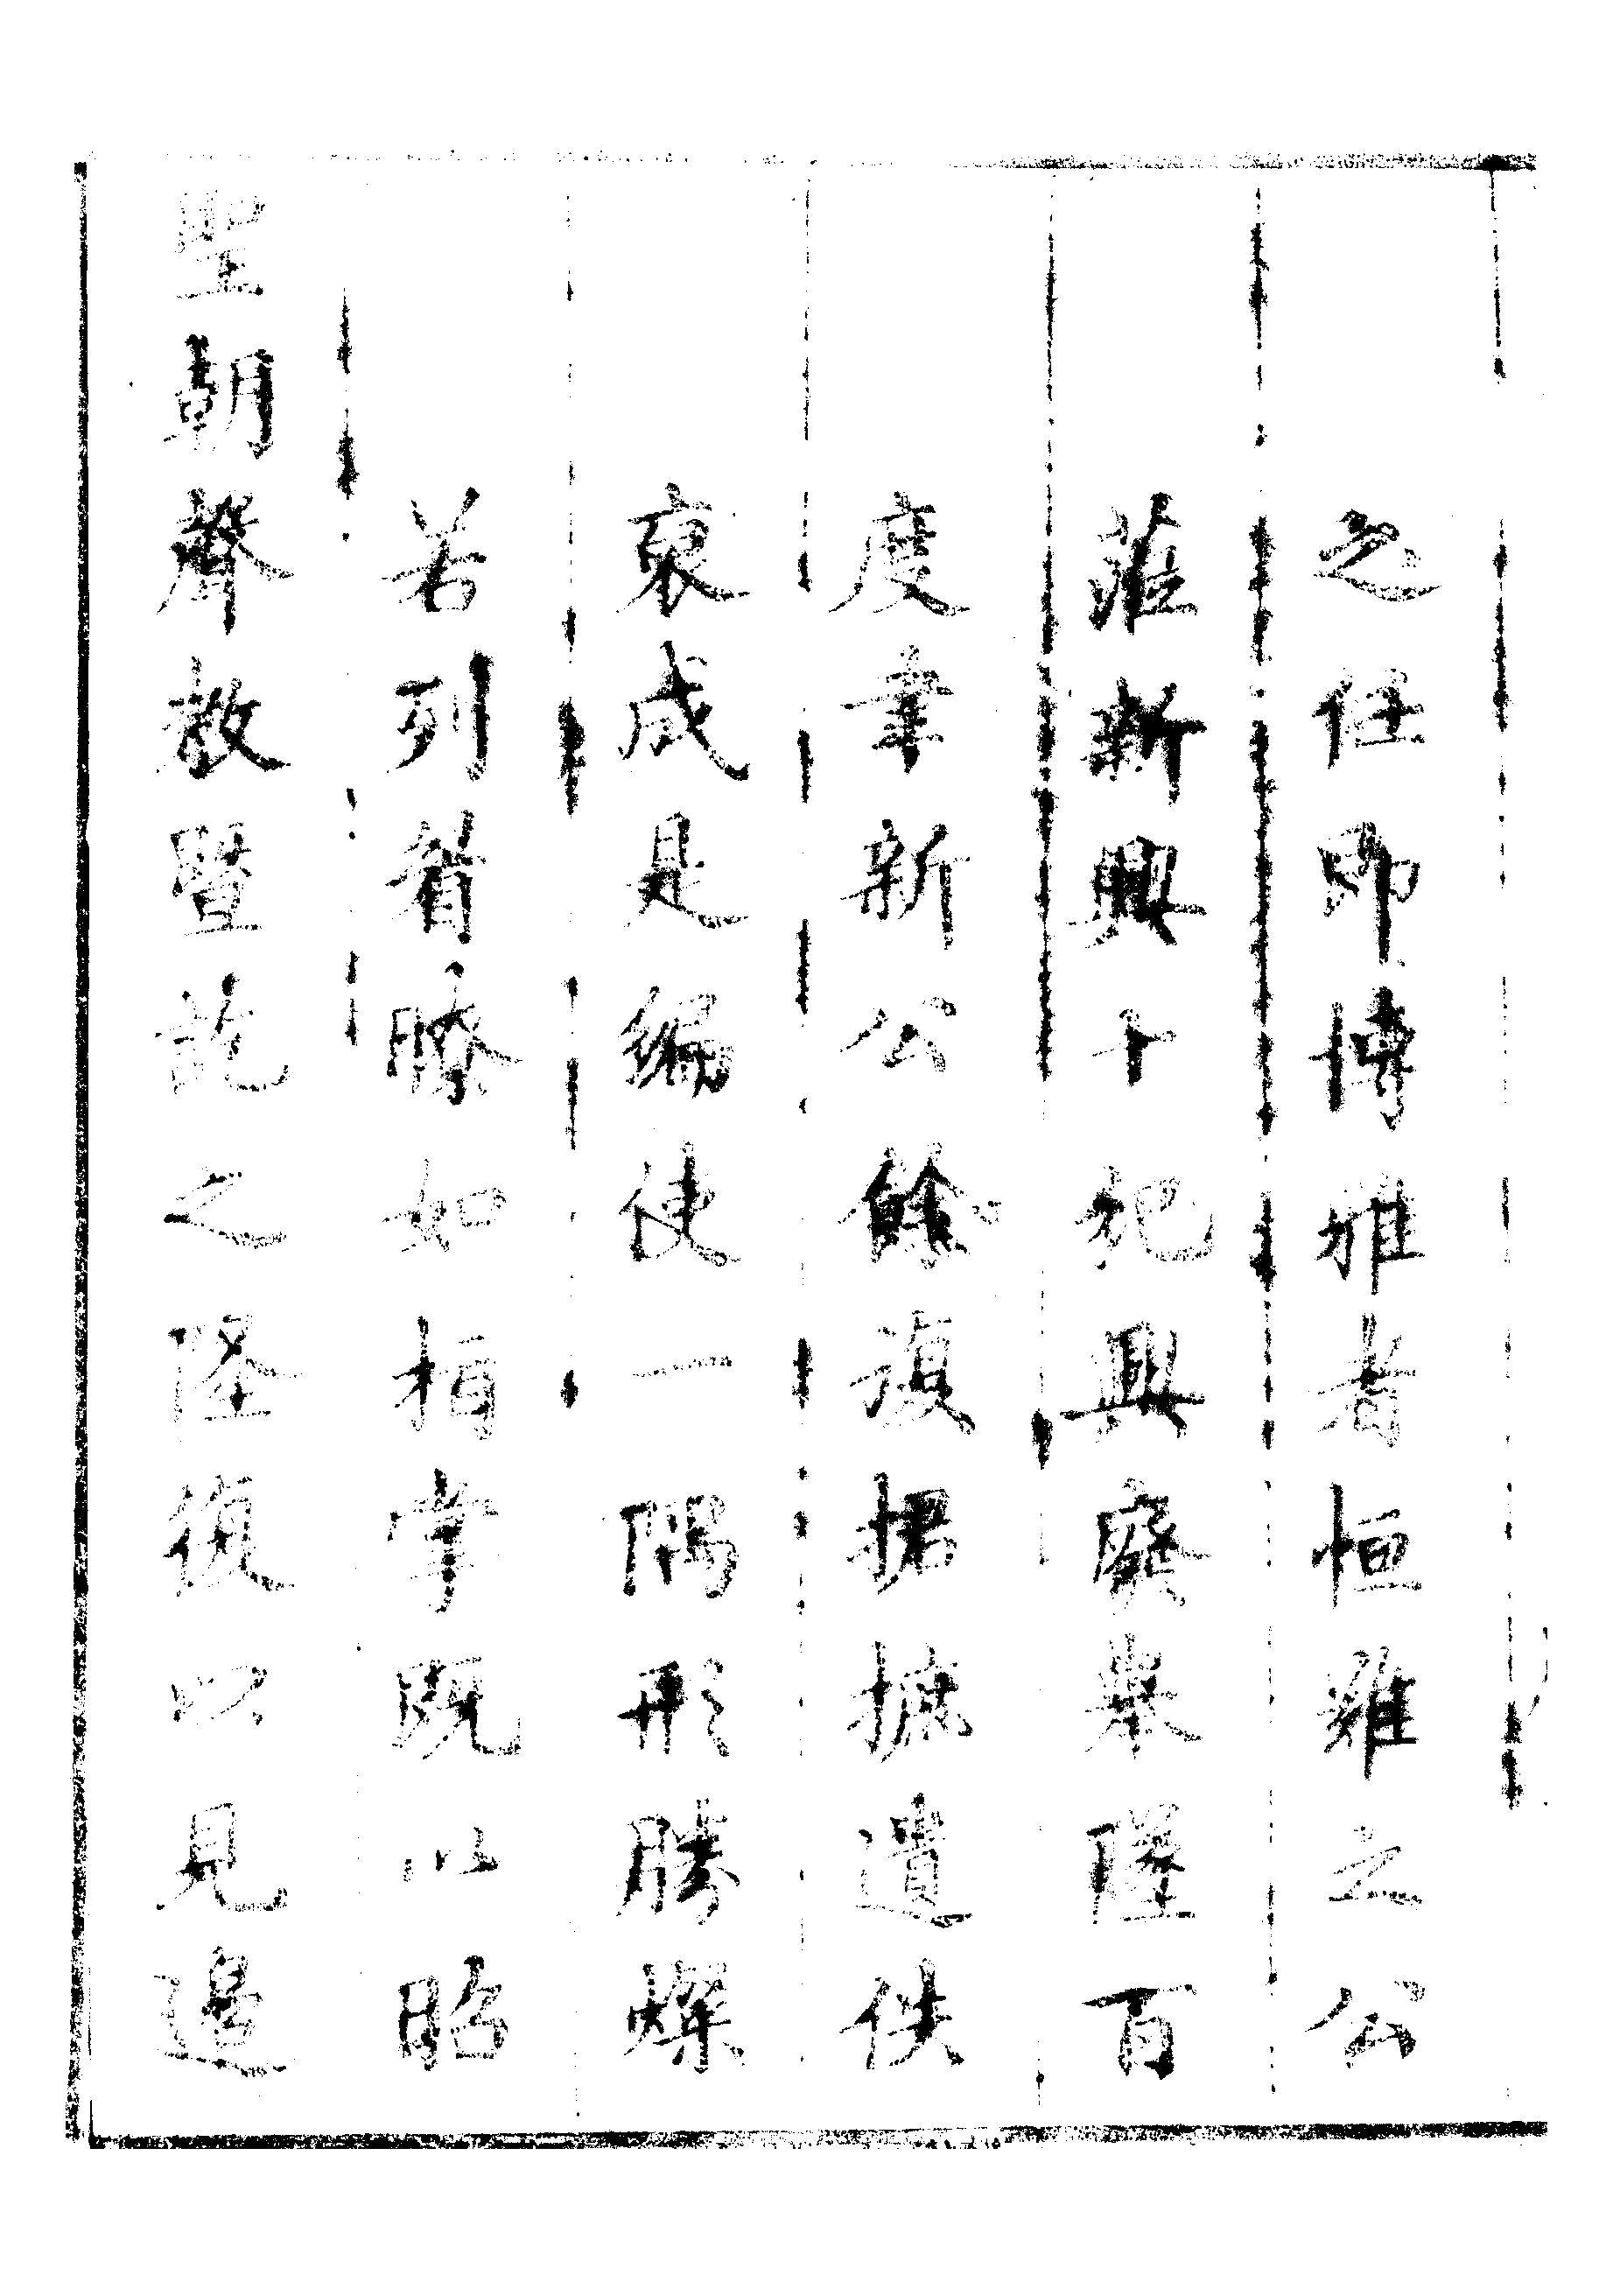 之任即博雅者恒難之公
蒞新興十祀興廢舉墜百
度聿新公餘復捃摭遺佚
裒成是編使一隅形勝燦
若列眉瞭如指掌既以昭
聖朝聲教暨訖之隆復以見邊